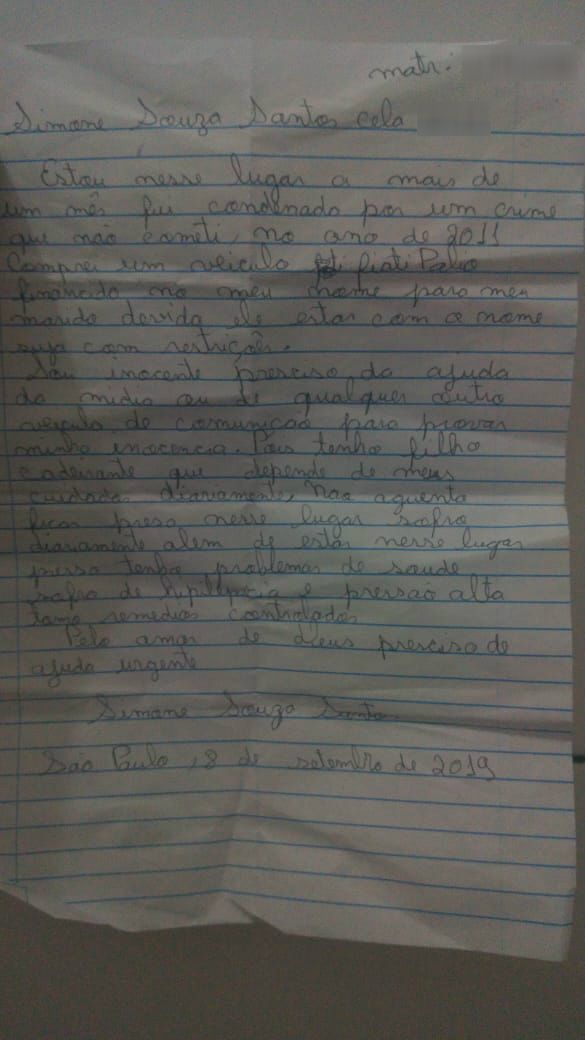 matr:
Simone Souza Santos cela
Estou nesse lugar a mais de
um mês fui condenado por um crime
que não cometi, no ano de 2011
Comprei um veiculo fiati Palio
financiado no meu nome para meu
marido devido ele estar com o nome
suja com restricões.
Sou inocente presciso da ajuda
da midia ou de qualquer outro
veiculo de comunicação para provar
minha inocencia. Pois tenho filho
cadeirante que depende de meus
cuidados diariamente, Nao aguento
ficar presa nesse lugar sofro
diariamente alem de estar nesse lugar
presa tenho problemas de saude
sofro de hipilepcia e pressão alta
tomo remedios controlados
Pelo amor de deus presciso de
ajuda urgente
Simone Souza Santos
São Paulo, 8 de setembro de 2019